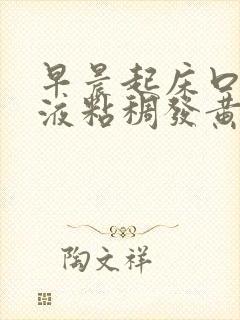 早晨起床口
液黏稠發黃
陶文祥